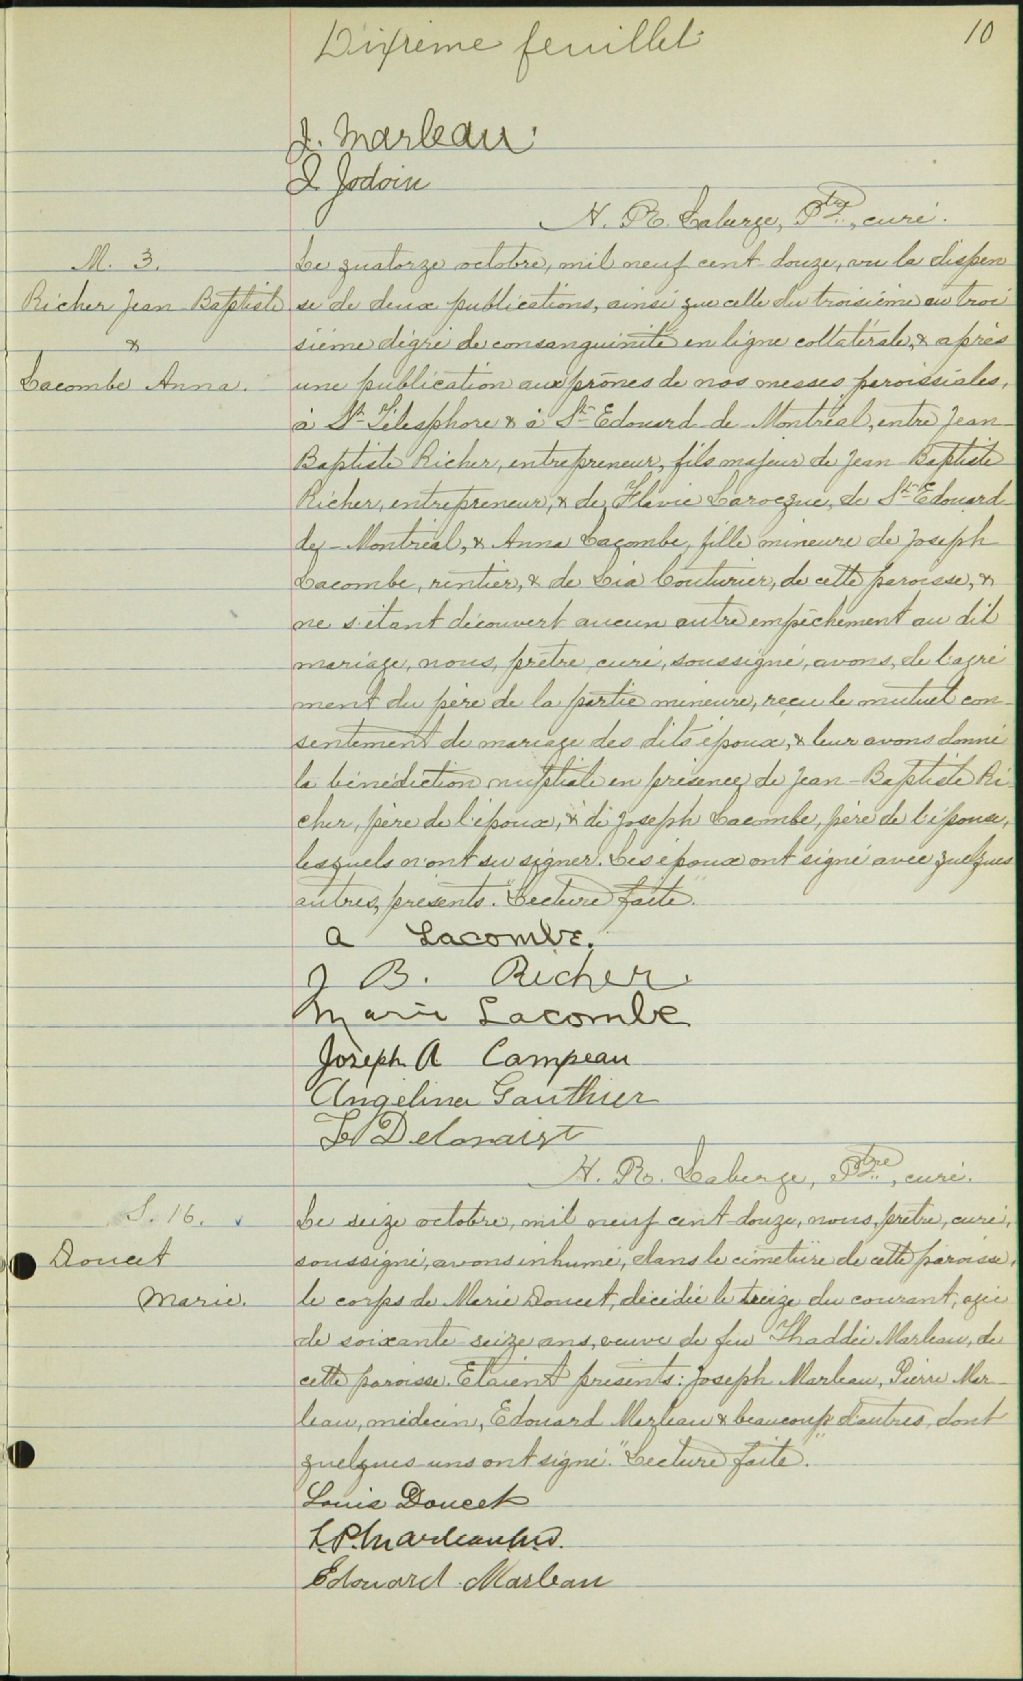 Dixième feuillet
10
J. Marleau
J. Jodoin
H. R. Laberge, Ptre, curé.
M. 3.
Richer Jean-Baptiste
&
Lacombe Anna.
Le quatorze octobre, mil neuf cent douze, vu la dispen
se de deux publications, ainsi que celle du troisième au troi
sième dégré de consanguinité en ligne collatérale, & après
une publication aux prônes de nos messes paroissiales,
à St-Télesphore & à St-Edouard-de-Montréal, entre Jean-
Baptiste Richer, entrepreneur, fils majeur de Jean-Baptiste
Richer, entrepreneur, & de Flavie Larocque, de St-Edouard-
de-Montréal, & Anna Lacombe, fille mineure de Joseph
Lacombe, rentier, & de Léa Couturier, de cette paroisse, &
ne s'étant découvert aucun autre empêchement au dit
mariage, nous, prêtre, curé, soussigné, avons, de l'agré
ment du père de la partie mineure, reçu le mutuel con-
sentement de mariage des dits époux, & leur avons donné
la bénédiction nuptiale en présence de Jean-Baptiste Ri-
cher, père de l'époux, & de Joseph Lacombe, père de l'épouse,
lesquels n'ont su signer. Les époux ont signé avec quelques
autres, présents. "Lecture faite."
A Lacombe.
J B. Richer
Marie Lacombe
Joseph A Campeau
Angelina Gauthier
H. R. Laberge, Ptre, curé.
S. 16.
Doucet
Marie.
Le seize octobre, mil neuf cent douze, nous, prêtre, curé,
soussigné, avons inhumé, dans le cimetière de cette paroisse,
le corps de Marie Doucet, décédée le treize du courant, agée
de soixante-seize ans, veuve de feu Thaddée Marleau, de
cette paroisse. Etaient présents: Joseph Marleau, Pierre Mar-
leau, médecin, Edouard Marleau & beaucoup d'autres, dont
quelques-uns ont signé. "Lecture faite."
Louis Doucet
L.P. Marleau M.D.
Edouard Marleau